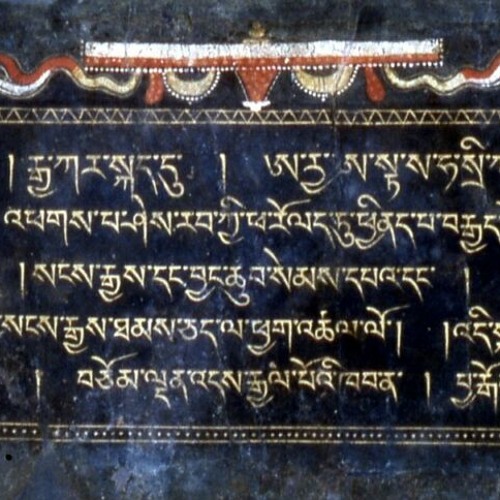 ། རྒྱ་ཀར་སྐད་དུ་ ། ཨ་རྱ་ ས་སྟ་ས་ཧ་སྲི་
འཕགས་པ་ཤེས་རབ་ཀྱི་ཕ་རོལད་དུ་ཕྱིནད་པ་བརྒྱད
། སངས་རྒྱས་དང་བྱང་ཆུབ་སེམས་དཔའ་དང་ །
སངས་རྒྱས་ཐམས་ཅད་ལ་ཕྱག་འཚལ་ལོ། །
། བཅོམ་ལྡན་འདས་རྒྱལ་པོའི་ཁབན་ ། བྱ་རྒོ